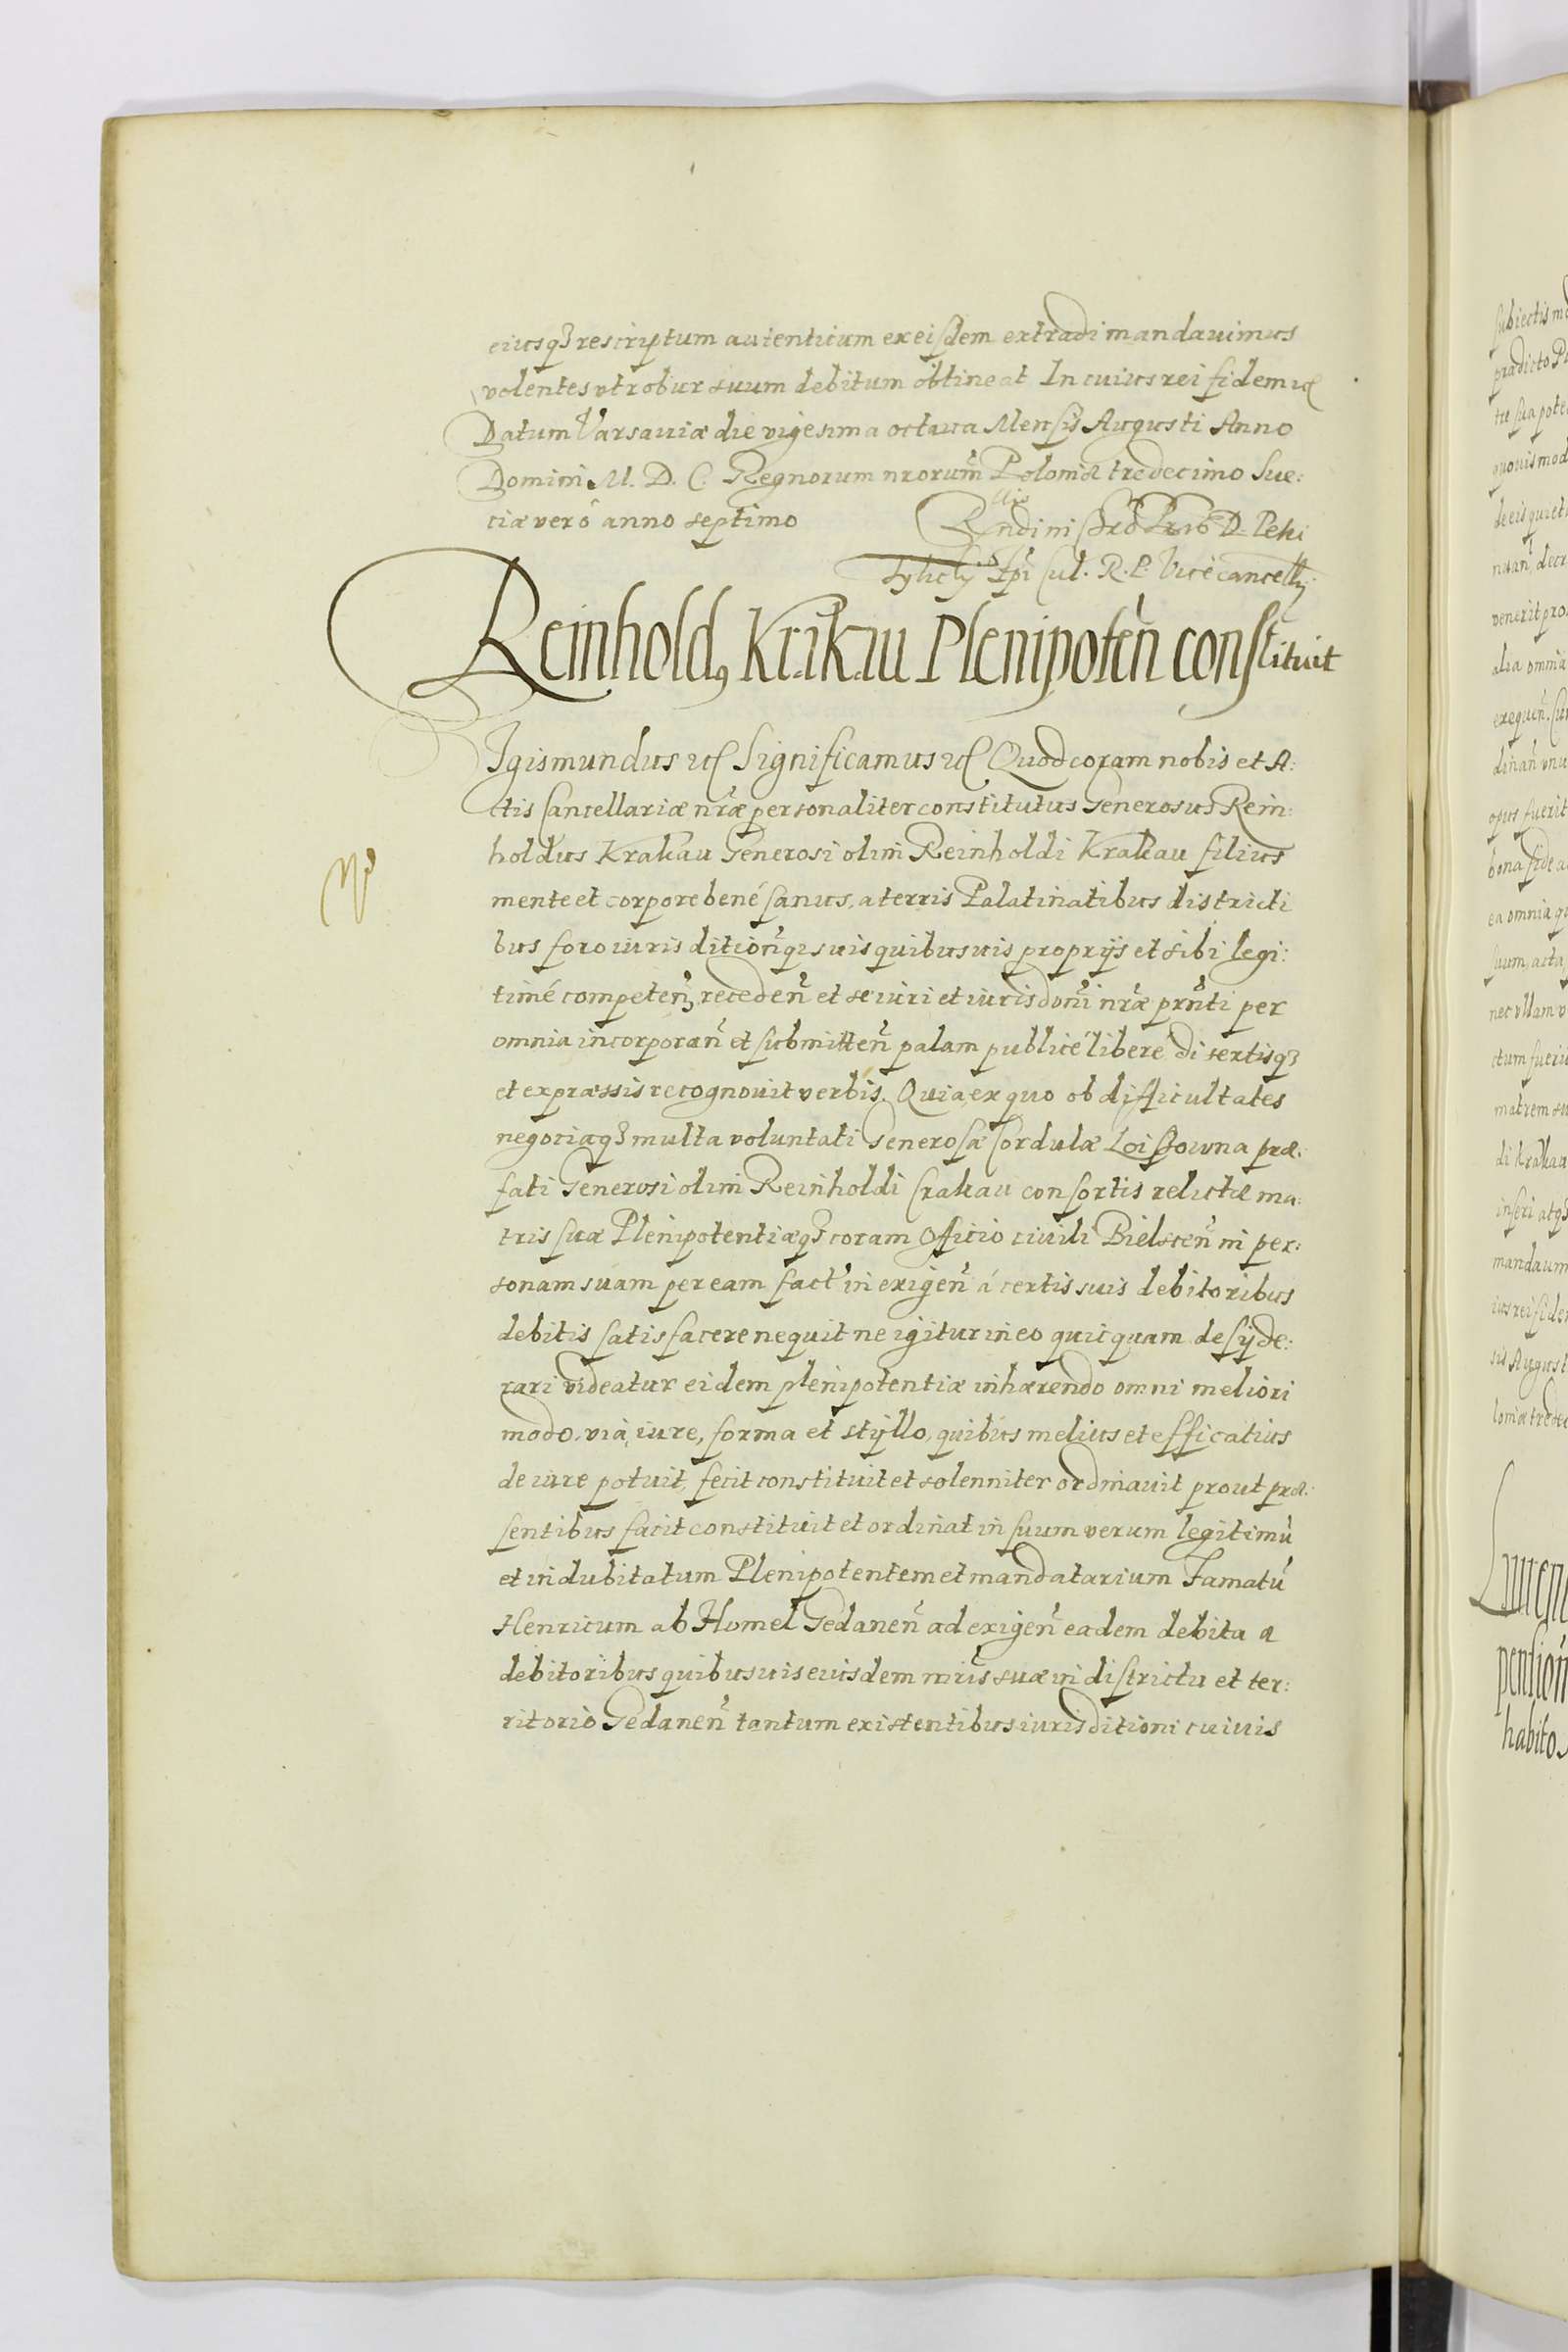 eiusq3 rescriptum autenticum ex eisdem extradi mandauimus
volentes vt robur suum debitum obtineat In cuius rei fidem ec
Datum Varsauiæ die vigesima octaua Mensis Augusti Anno
Domini M. D. C. Regnorum nrorum Poloniæ tredecimo Sue:
ciæ veró anno septimo
Rndini D. Petri
Tylicky Epi Cul. R. P. Vicecancellÿ
Reinhold9 Krakau Plenipoten constituit
Igismundus ec Significamus ec Quod coram nobis et A:
ctis Cancellariæ nræ personaliter constitutus Generosus Rein:
holdus Krakau Generosi olim Reinholdi Krakau filius
mente et corpore bené sanus, a terris Palatinatibus districti
bus foro iurisdicionq3 suis quibusuis proprijs et sibi legi:
timé competen, receden et se iuri et iurisdoni nræ prnti per
omnia incorporan et submitten palam publicé libere disertisq3
et expræssis recognouit verbis. Quia ex quo ob difficultates
negociaq3 multa voluntati Generosæ Cordulæ Loissowna præ:
fati Generosi olim Reinholdi Crakau consortis relictæ ma:
tris suæ Plenipotentiæq3 coram Officio ciuili Bielscen in per:
sonam suam per eam fact in exigen á certis suis debitoribus
debitis satisfacere nequit ne igitur in eo quicquam desyde:
rari videatur eidem plenipotentiæ inhærendo omni meliori
modo, via, iure, forma et styllo, quibus melius et efficatius
de iure potuit, fecit constituit et solenniter ordinauit prout præ:
sentibus facit constituit et ordinat in suum verum legitimu
et indubitatum Plenipotentem et mandatarium Famatu
Henricum ab Homel Gedanen ad exigen eadem debita a
debitoribus quibusuis eiusdem mris suæ in districtu et ter:
ritorio Gedanen tantum existentibus iurisditioni cuiuis